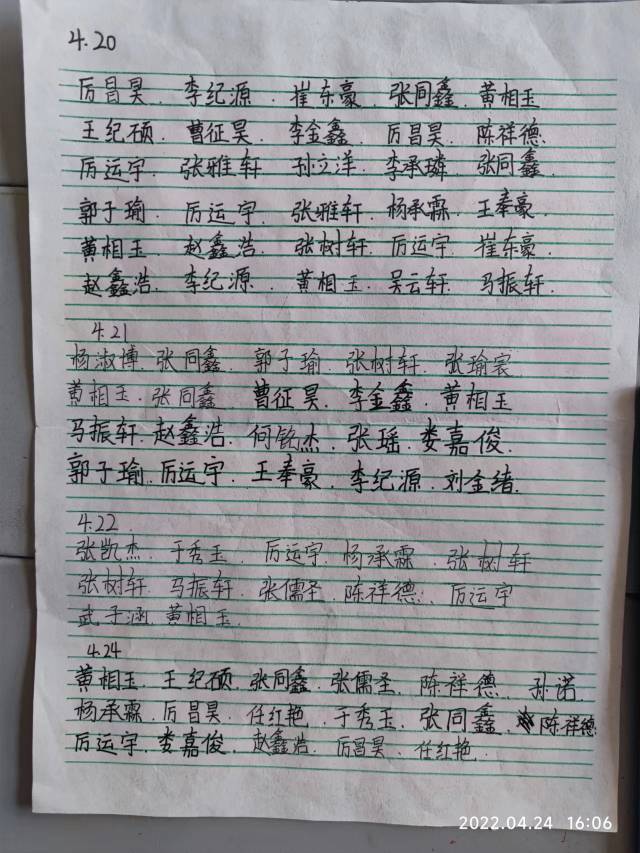 4.20
厉昌昊. 李纪源. 崔东豪. 张同鑫. 黄相玉
王纪硕. 曹征昊. 李金鑫. 厉昌昊. 陈祥德.
厉运宇. 张雅轩. 孙立洋. 李承璘. 张同鑫.
郭子瑜. 厉运宇. 张雅轩. 杨承霖. 王奉豪.
黄相玉. 赵鑫浩. 张树轩. 厉运宇. 崔东豪.
赵鑫浩. 李纪源. 黄相玉. 吴云轩. 马振轩.
4.21
杨淑博. 张同鑫. 郭子瑜. 张树轩. 张瑜宸
黄相玉. 张同鑫. 曹征昊. 李金鑫. 黄相玉
马振轩. 赵鑫浩. 何铭杰. 张瑶. 娄嘉俊.
郭子瑜. 厉运宇. 王奉豪. 李纪源. 刘金绪.
4.22
张凯杰. 于秀玉. 厉运宇. 杨承霖. 张树轩
张树轩. 马振轩. 张儒圣. 陈祥德. 厉运宇
武子涵. 黄相玉.
4.24
黄相玉. 王纪硕. 张同鑫. 张儒圣. 陈祥德. 孙诺.
杨承霖. 厉昌昊. 任红艳. 于秀玉. 张同鑫. 陈祥德.
厉运宇. 娄嘉俊. 赵鑫浩. 厉昌昊. 任红艳.
2022.04.24 16:06